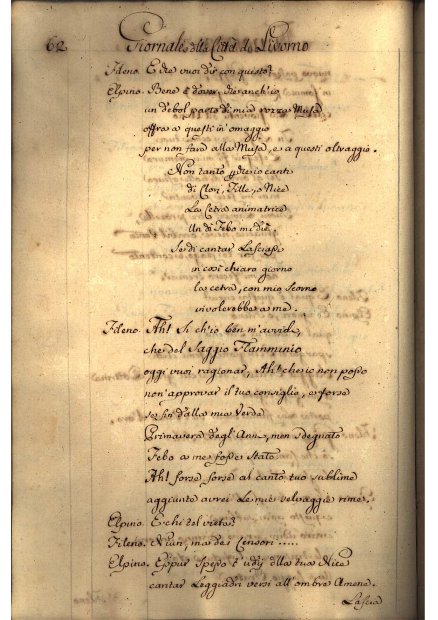 62. Giornale della Città di Livorno
Fileno. E che vuoi dir con questo?
Elpino. Bene è dover ch'anch'io
un debol parto di mia rozza Musa
offra a questi in omaggio
per non fare alla Musa, e a questi oltraggio.
Non tanto perch'io canti
di Clori, Fille, o Nice
La Cetra animatrice
Un dì Febo mi diè.
Se di cantar Lasciasse
in così chiaro giorno
la cetra, con mio scorno
involerebbe a me.
Fileno. Ah! Sì ch'io ben m'avvidi,
che del Saggio Flamminio
oggi vuoi ragionar, Ah! che io non posso
non approvar il tuo consiglio, e forse
se fin dalla mia Verde
Primavera degl'Anni, men sdegnato
Febo a me fosse stato
Ah! forse forse al canto tuo sublime
aggiunto avrei Le mie selvaggie rime.
Elpino. E chi tel vieta?
Fileno. Niun, ma dei Censori .....
Elpino. Eppur spesso t'udij alla tua Nice
cantar Leggiadri versi all'ombre Amene.
Lascia